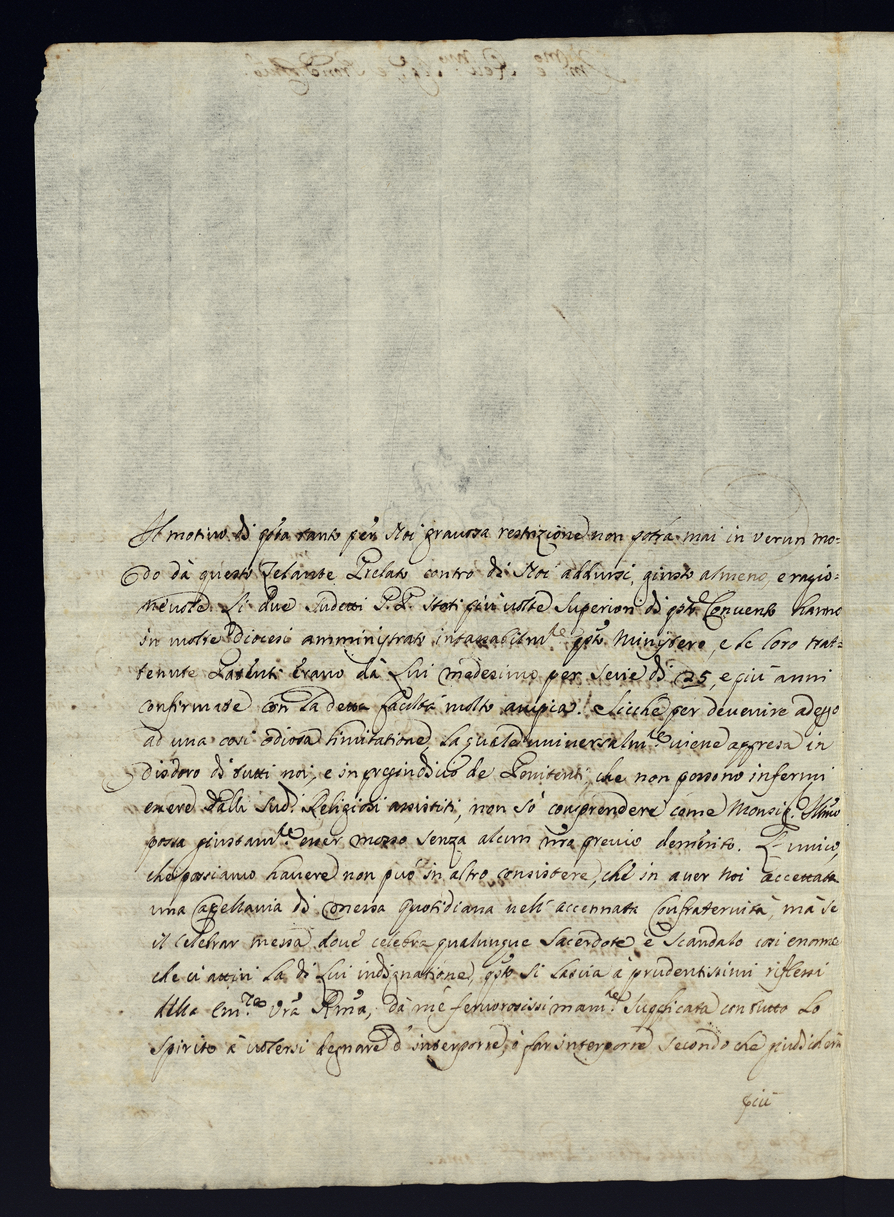 Il motivo di qsta tanto per Noi gravosa restrizione non potrà mai in verun mo=
do dà questo Zelante Prelato contro di Noi addursi, giusto almeno, e ragio=
nevole. Li due sudetti P.P. stati più volte Superiori di qsto Convento hanno
in molte Diocesi amministrato qsto Ministero, e le loro trat=
tenute Patenti erano dà Lui medesimo per serie di 25, e più anni
confirmate con la detta facoltà molto ampia: Sicche per devenire adesso
ad una così odiosa limitatione, la quale universalmte viene appresa in
disdoro di tutti noi, e in pregiudicio de Penitenti, che non possono infermi
essere dalli sudi Religiosi assistiti, non sò comprendere come Monsigr Illmo
possa giustamte esser mosso senza alcun nro previo demerito. L'unico,
che possiamo havere non può in altro consistere, che in aver Noi accettata
una Capellania di Messa quotidiana nell'accennata Confraternità, mà se
il celebrar messa dove celebra qualunque Sacerdote è scandalo così enorme
che ci attiri la di Lui indignatione, qsto si lascia à prudentissimi riflessi
della Emza Vra Rma, dà mè fervorosissimamte suplicata con tutto lo
spirito à volersi degnare d'interporre, ò far interporre secondo che giudicherà
più